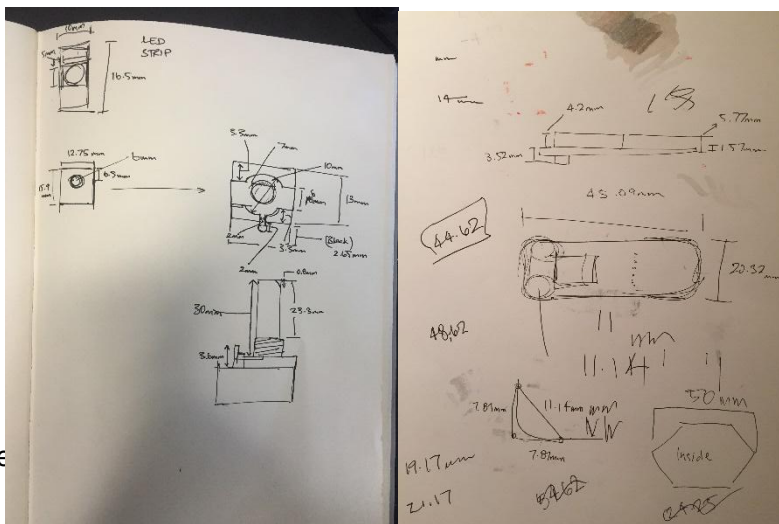 10mm
LED
STRIP
5mm
16.5mm
12.75 mm
6mm
6.5mm
15.9
3.3mm
7mm
10mm
13mm
2mm
3.3mm
(Black)
2.65mm
2mm
0.8mm
30mm
23.3mm
8.6mm
e
mm
14mm
4.2mm
5.77mm
3.52mm
1.57mm
45.09mm
44.62
20.32mm
48.62
11
mm
11.14
7.87mm
11.14mm
7.87mm
50mm
inside
19.17mm
21.17